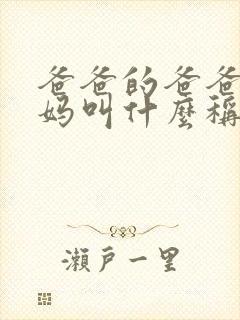 爸爸的爸爸
妈叫什麼稱
瀨戶一里